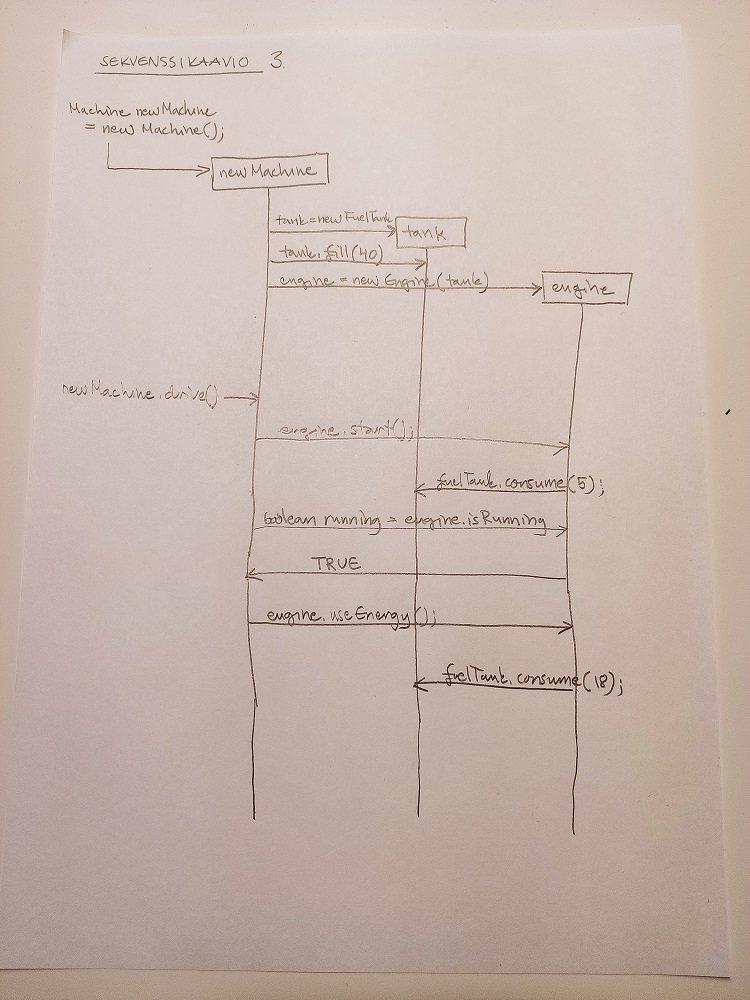 SEKVENSSIKAAVIO 3.
Machine newMachine
= new Machine();
newMachine
tank=newFuelTank
tank
tank.fill(40)
engine = new Engine(tank)
engine
newMachine.drive()
engine.start();
fuelTank.consume(5);
boolean running = engine.isRunning
TRUE
engine.useEnergy();
fuelTank.consume(18);